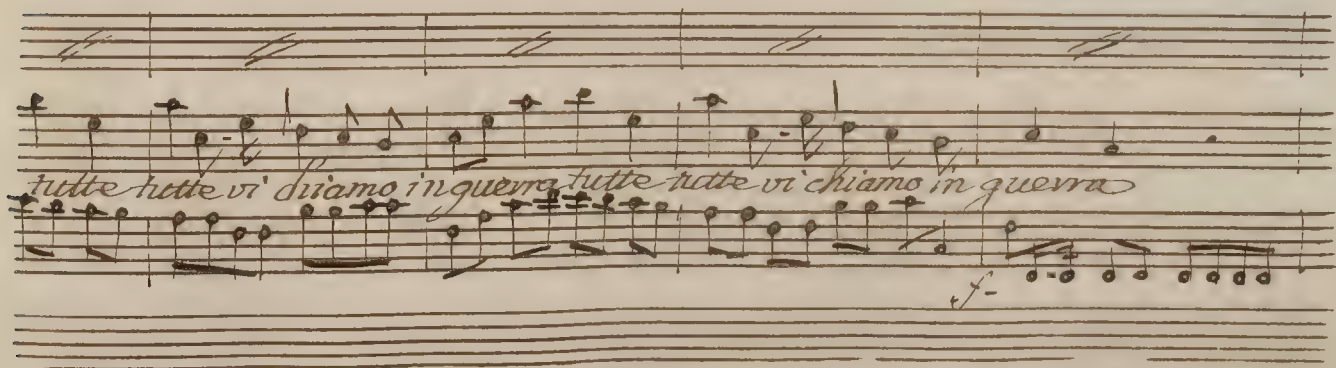 tutte tutte vi chiamo in guerra tutte tutte vi chiamo in guerra
f